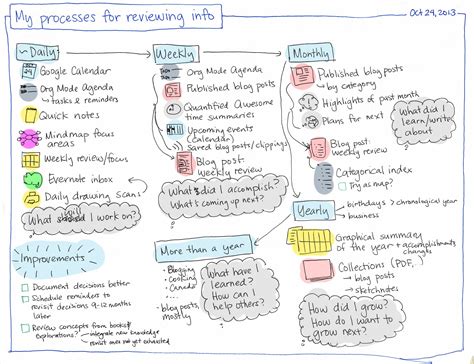 My processes for reviewing info
Oct 24, 2013
Daily
Google Calendar
Org Mode Agenda
↳ tasks & reminders
Quick notes
Mindmap focus
areas
Weekly review/focus
Evernote inbox
Daily drawing scans
What should I work on?
still
Improvements
Document decisions better
Schedule reminders to
revisit decisions 9-12 months
later
Review concepts from books/
explorations?
integrate new knowledge
revisit ones not yet exhausted
Weekly
Org Mode Agenda
Published blog posts
Quantified Awesome
time summaries
Upcoming events
(Calendar)
Saved blog posts/clippings
Blog post:
weekly review
What did I accomplish?
What's coming up next?
More than a year
• Blogging
• Cooking
• Canada
• blog posts,
mostly
What have I
learned?
How can I
help others?
Monthly
Published blog posts
↳ by category
Highlights of past month
Plans for next
What did I
learn/write
about
Blog post:
weekly review
Categorical index
Try as map?
Yearly
birthdays > chronological year
business
Graphical summary
of the year
+ accomplishments
changes
Collections (PDF,
→ blog posts
→ sketchnotes
How did I grow?
How do I want to
grow next?